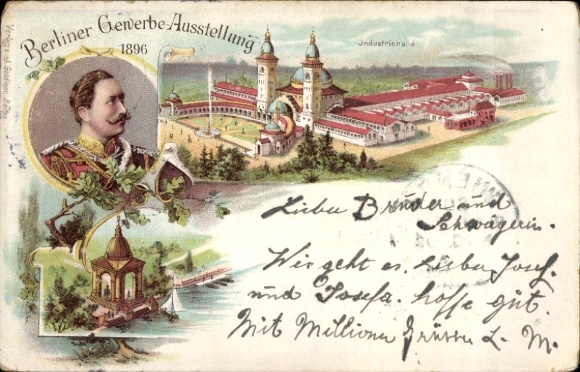 Berliner Gewerbe-Ausstellung
1896
Industriehalle
Lieber Bruder und
Schwägerin.
Wie geht es. Lieber Josef.
und Josefa. hoffe gut.
Mit Millionen Grüssen L. M.